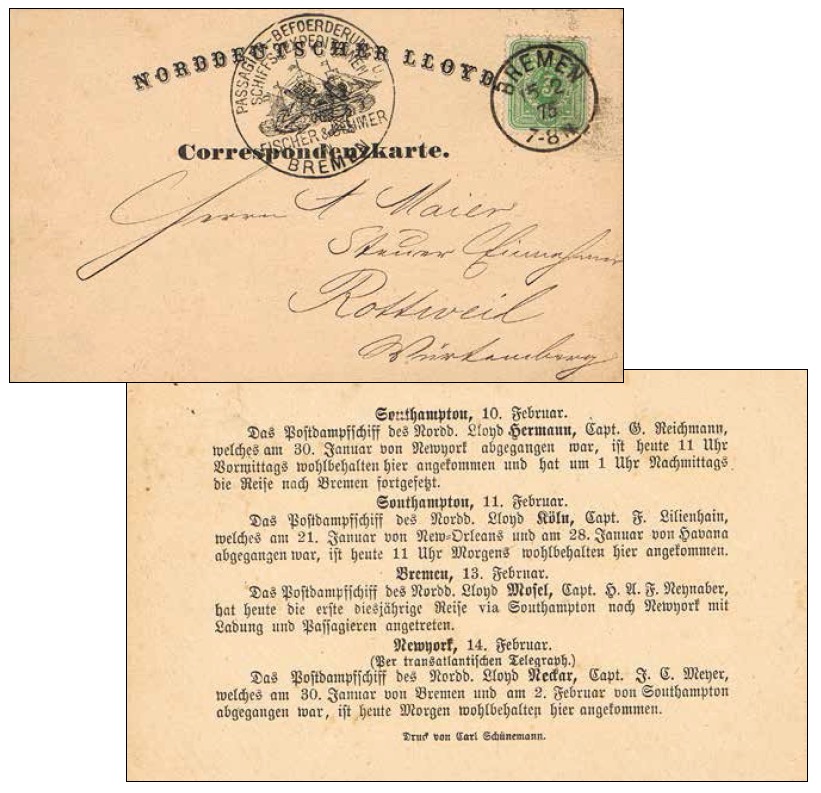 NORDDEUTSCHER LLOYD.
PASSAGIER-BEFOERDERUNG U.
SCHIFFS-EXPEDITIONEN
FISCHER & BEHMER
IN
BREMEN
BREMEN
7-8 N
Correspondenzkarte.
Herrn A Maier
Steuer Einnehmer
Rottweil
Würtemberg
Southampton, 10. Februar.
Das Postdampfschiff des Nordd. Lloyd Hermann, Capt. G. Reichmann,
welches am 30. Januar von Newyork abgegangen war, ist heute 11 Uhr
Vormittags wohlbehalten hier angekommen und hat um 1 Uhr Nachmittags
die Reise nach Bremen fortgesetzt.
Southampton, 11. Februar.
Das Postdampfschiff des Nordd. Lloyd Köln, Capt. F. Lilienhain,
welches am 21. Januar von New-Orleans und am 28. Januar von Havana
abgegangen war, ist heute 11 Uhr Morgens wohlbehalten hier angekommen.
Bremen, 13. Februar.
Das Postdampfschiff des Nordd. Lloyd Mosel, Capt. H. A. F. Neynaber,
hat heute die erste diesjährige Reise via Southampton nach Newyork mit
Ladung und Passagieren angetreten.
Newyork, 14. Februar.
(Per transatlantischen Telegraph.)
Das Postdampfschiff des Nordd. Lloyd Neckar, Capt. J. C. Meyer,
welches am 30. Januar von Bremen und am 2. Februar von Southampton
abgegangen war, ist heute Morgen wohlbehalten hier angekommen.
Druck von Carl Schünemann.